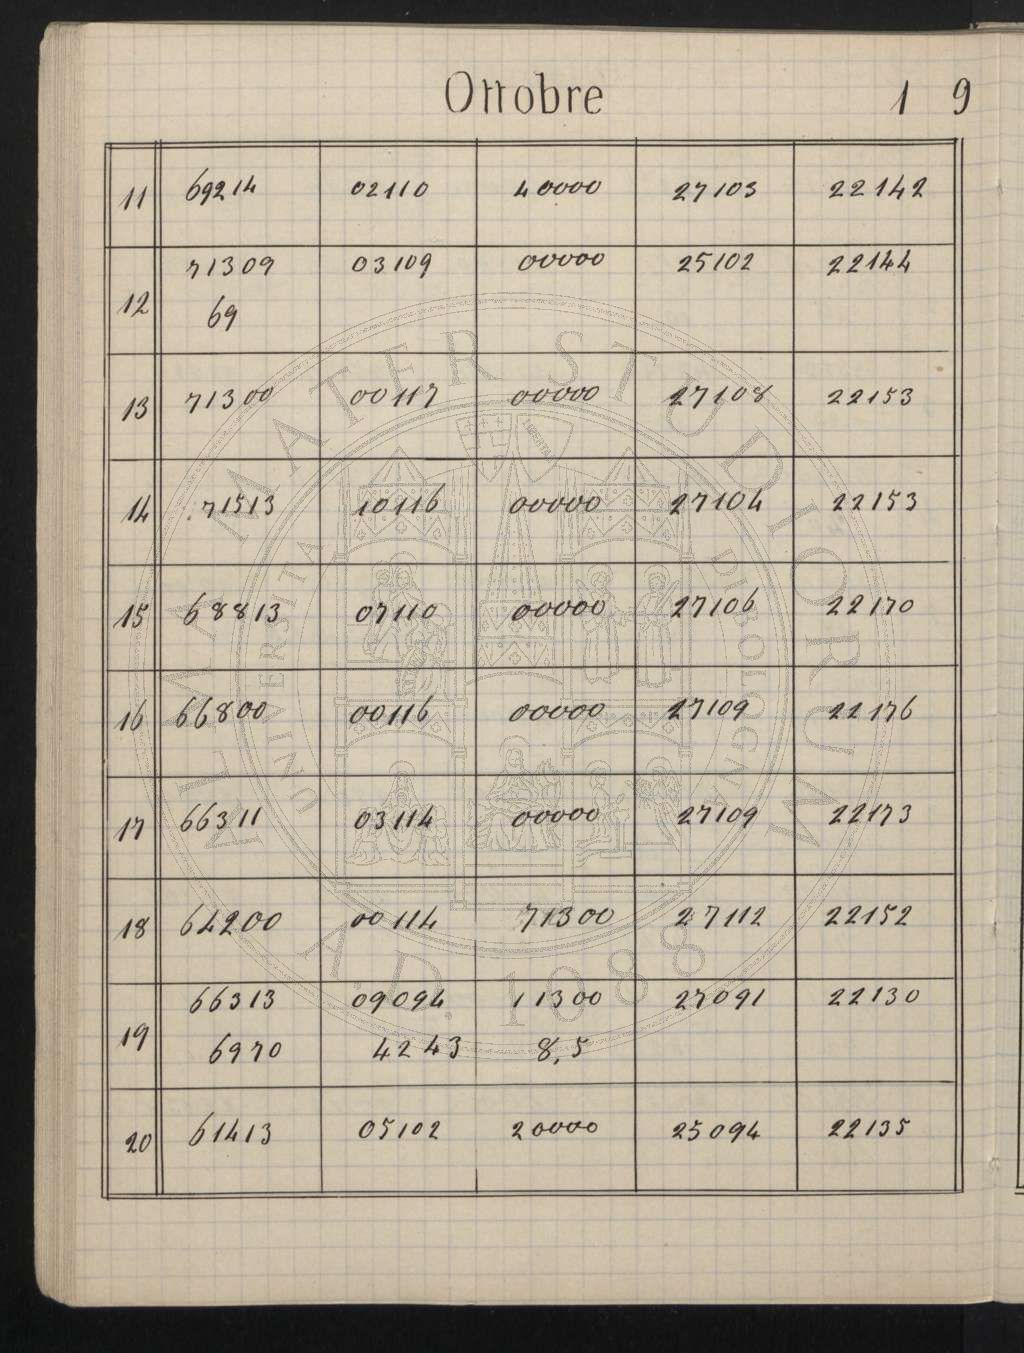 Ottobre 1 9
11 69214 02110 40000 27103 22142
71309 03109 00000 25102 22144
12 69
13 71300 00117 00000 27108 22153
14 71513 10116 00000 27104 22153
15 68813 07110 00000 27106 22170
16 66800 00116 00000 27109 22176
17 66311 03114 00000 27109 22173
18 64200 00114 71300 27112 22152
66313 09094 11300 27091 22130
19 6970 4243 8,5
20 61413 05102 20000 25094 22135
ALMA MATER STUDIORUM
A.D. 1088